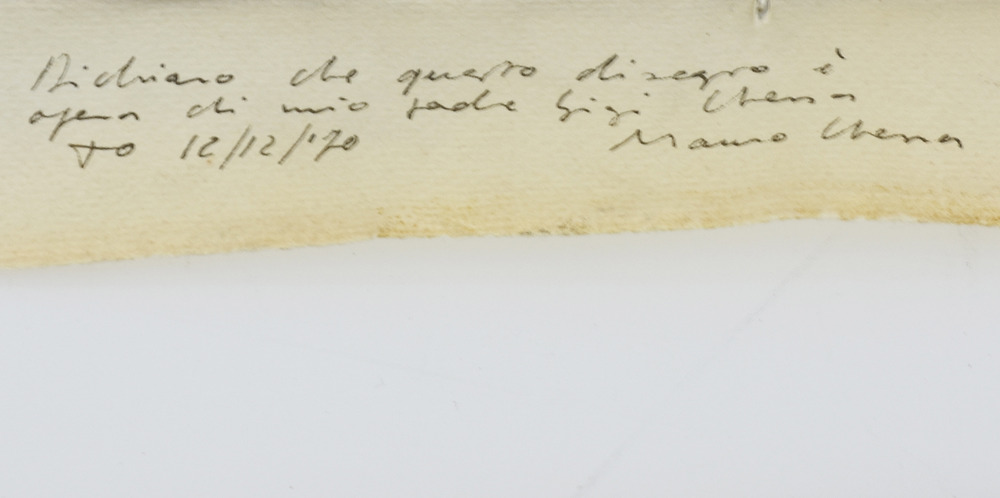 Dichiaro che questo disegno è
opera di mio padre Gigi Chessa
TO 12/12/'70 Mauro Chessa